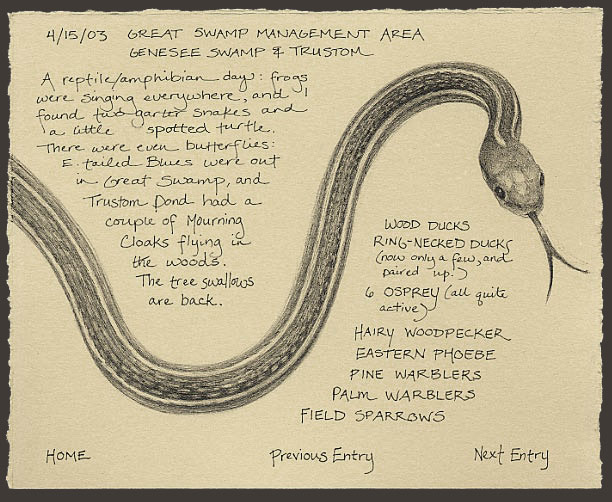 4/15/03 GREAT SWAMP MANAGEMENT AREA
GENESEE SWAMP & TRUSTOM
A reptile/amphibian day: frogs
were singing everywhere, and I
found two garter snakes and
a little spotted turtle.
There were even butterflies:
E. tailed Blues were out
in Great Swamp, and
Trustom Pond had a
couple of Mourning
Cloaks flying in
the woods.
The tree swallows
are back.
WOOD DUCKS
RING-NECKED DUCKS
(now only a few, and
paired up.)
6 OSPREY (all quite
active)
HAIRY WOODPECKER
EASTERN PHOEBE
PINE WARBLERS
PALM WARBLERS
FIELD SPARROWS
HOME
Previous Entry
Next Entry